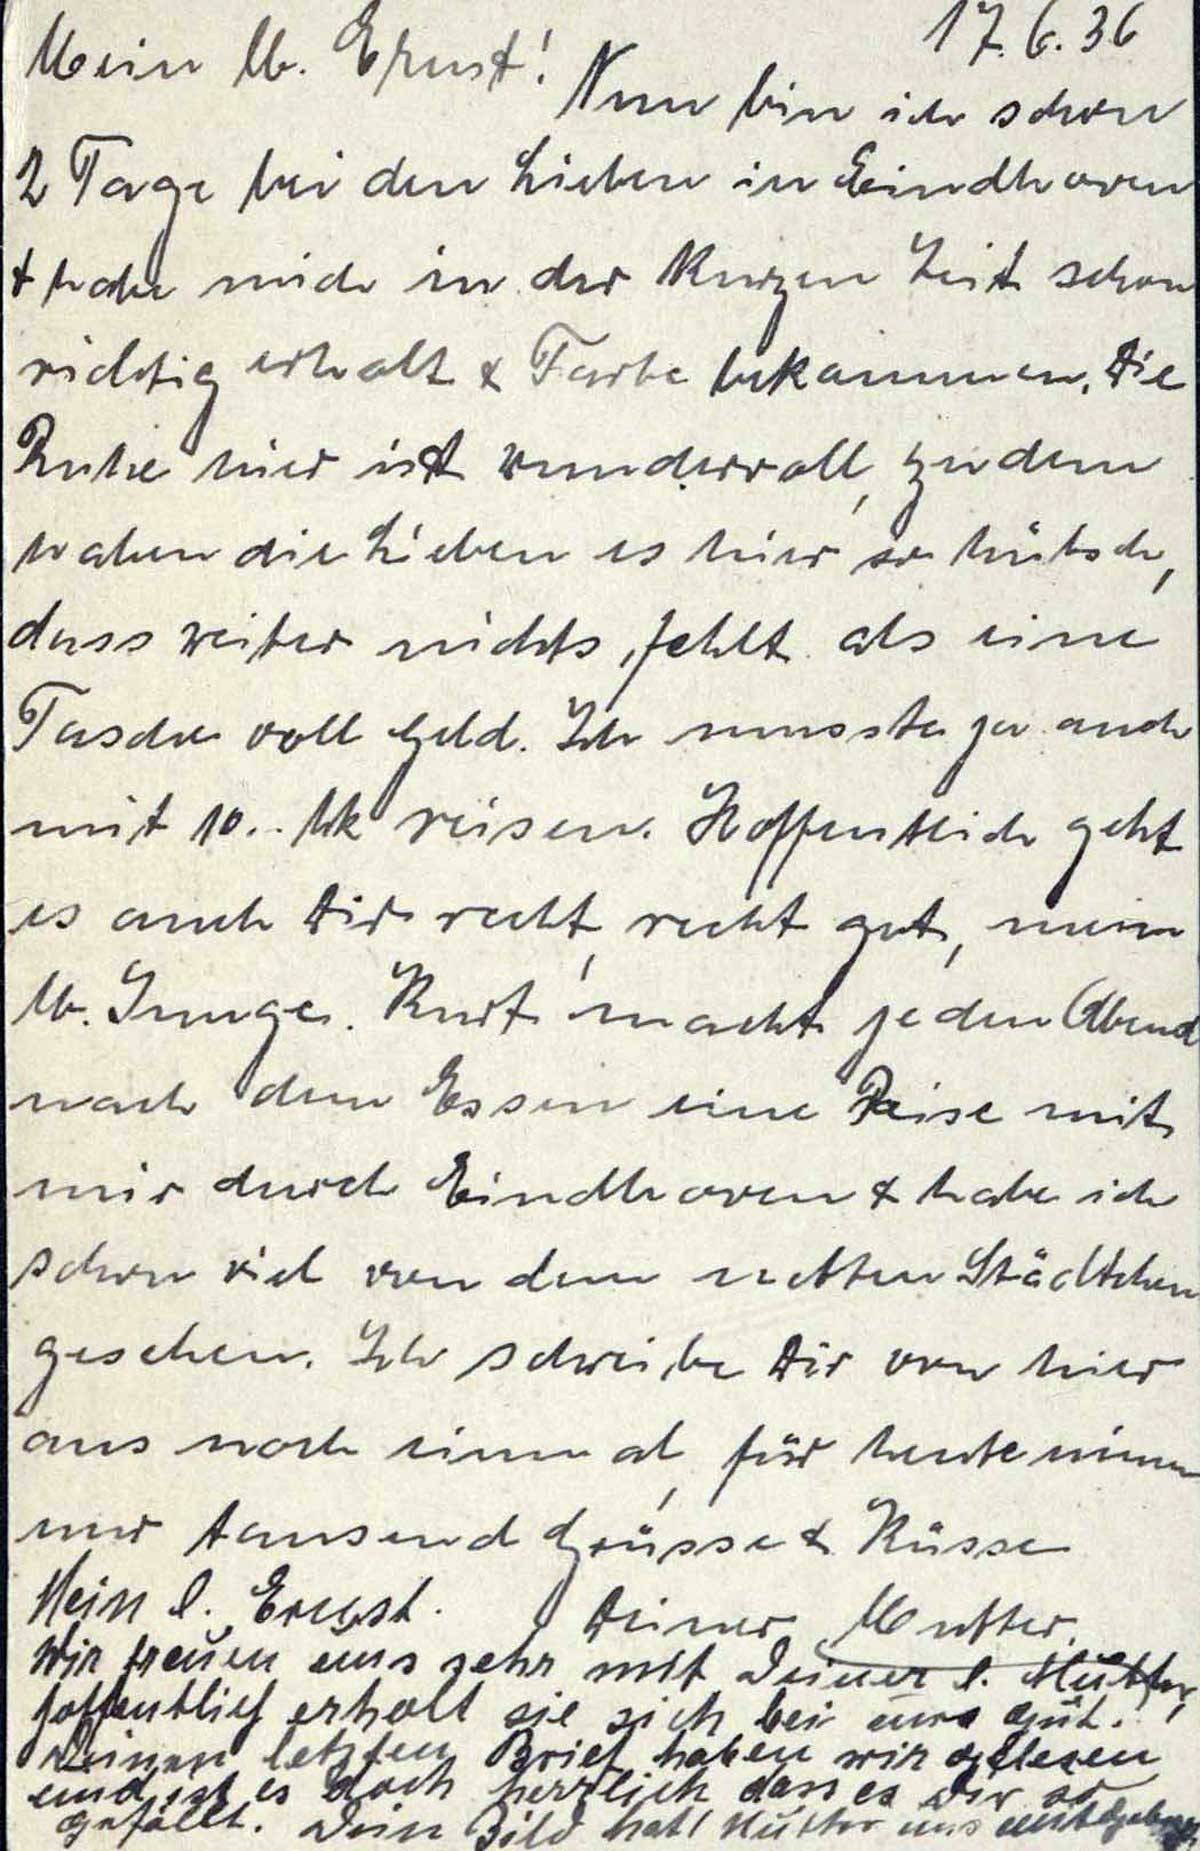 17.6.36
Mein lb. Ernst!
Nun bin ich schon
2 Tage bei den Lieben in Eindhoven
+ habe mich in der kurzen Zeit schon
richtig erholt & Farbe bekommen. Die
Ruhe hier ist wundervoll, zudem
haben die Lieben es hier so hübsch,
dass weiter nichts fehlt als eine
Tasche voll Geld. Ich musste ja auch
mit 10.. Mk reisen. Hoffentlich geht
es auch Dir recht, recht gut, mein
lb. Junge. Kurt macht jeden Abend
nach dem Essen eine Reise mit
mir durch Eindhoven & habe ich
schon viel von dem netten Städtchen
gesehen. Ich schreibe Dir von hier
aus noch einmal, für heute nimm
nur tausend Grüsse & Küsse
Deiner Mutter.
Mein l. Ernst.
Wir freuen uns sehr mit Deiner l. Mutter,
hoffentlich erholt sie sich bei uns gut.
Deinen letzten Brief haben wir gelesen
und ist es doch herrlich dass es Dir so
gefällt. Dein Bild hat Mutter uns